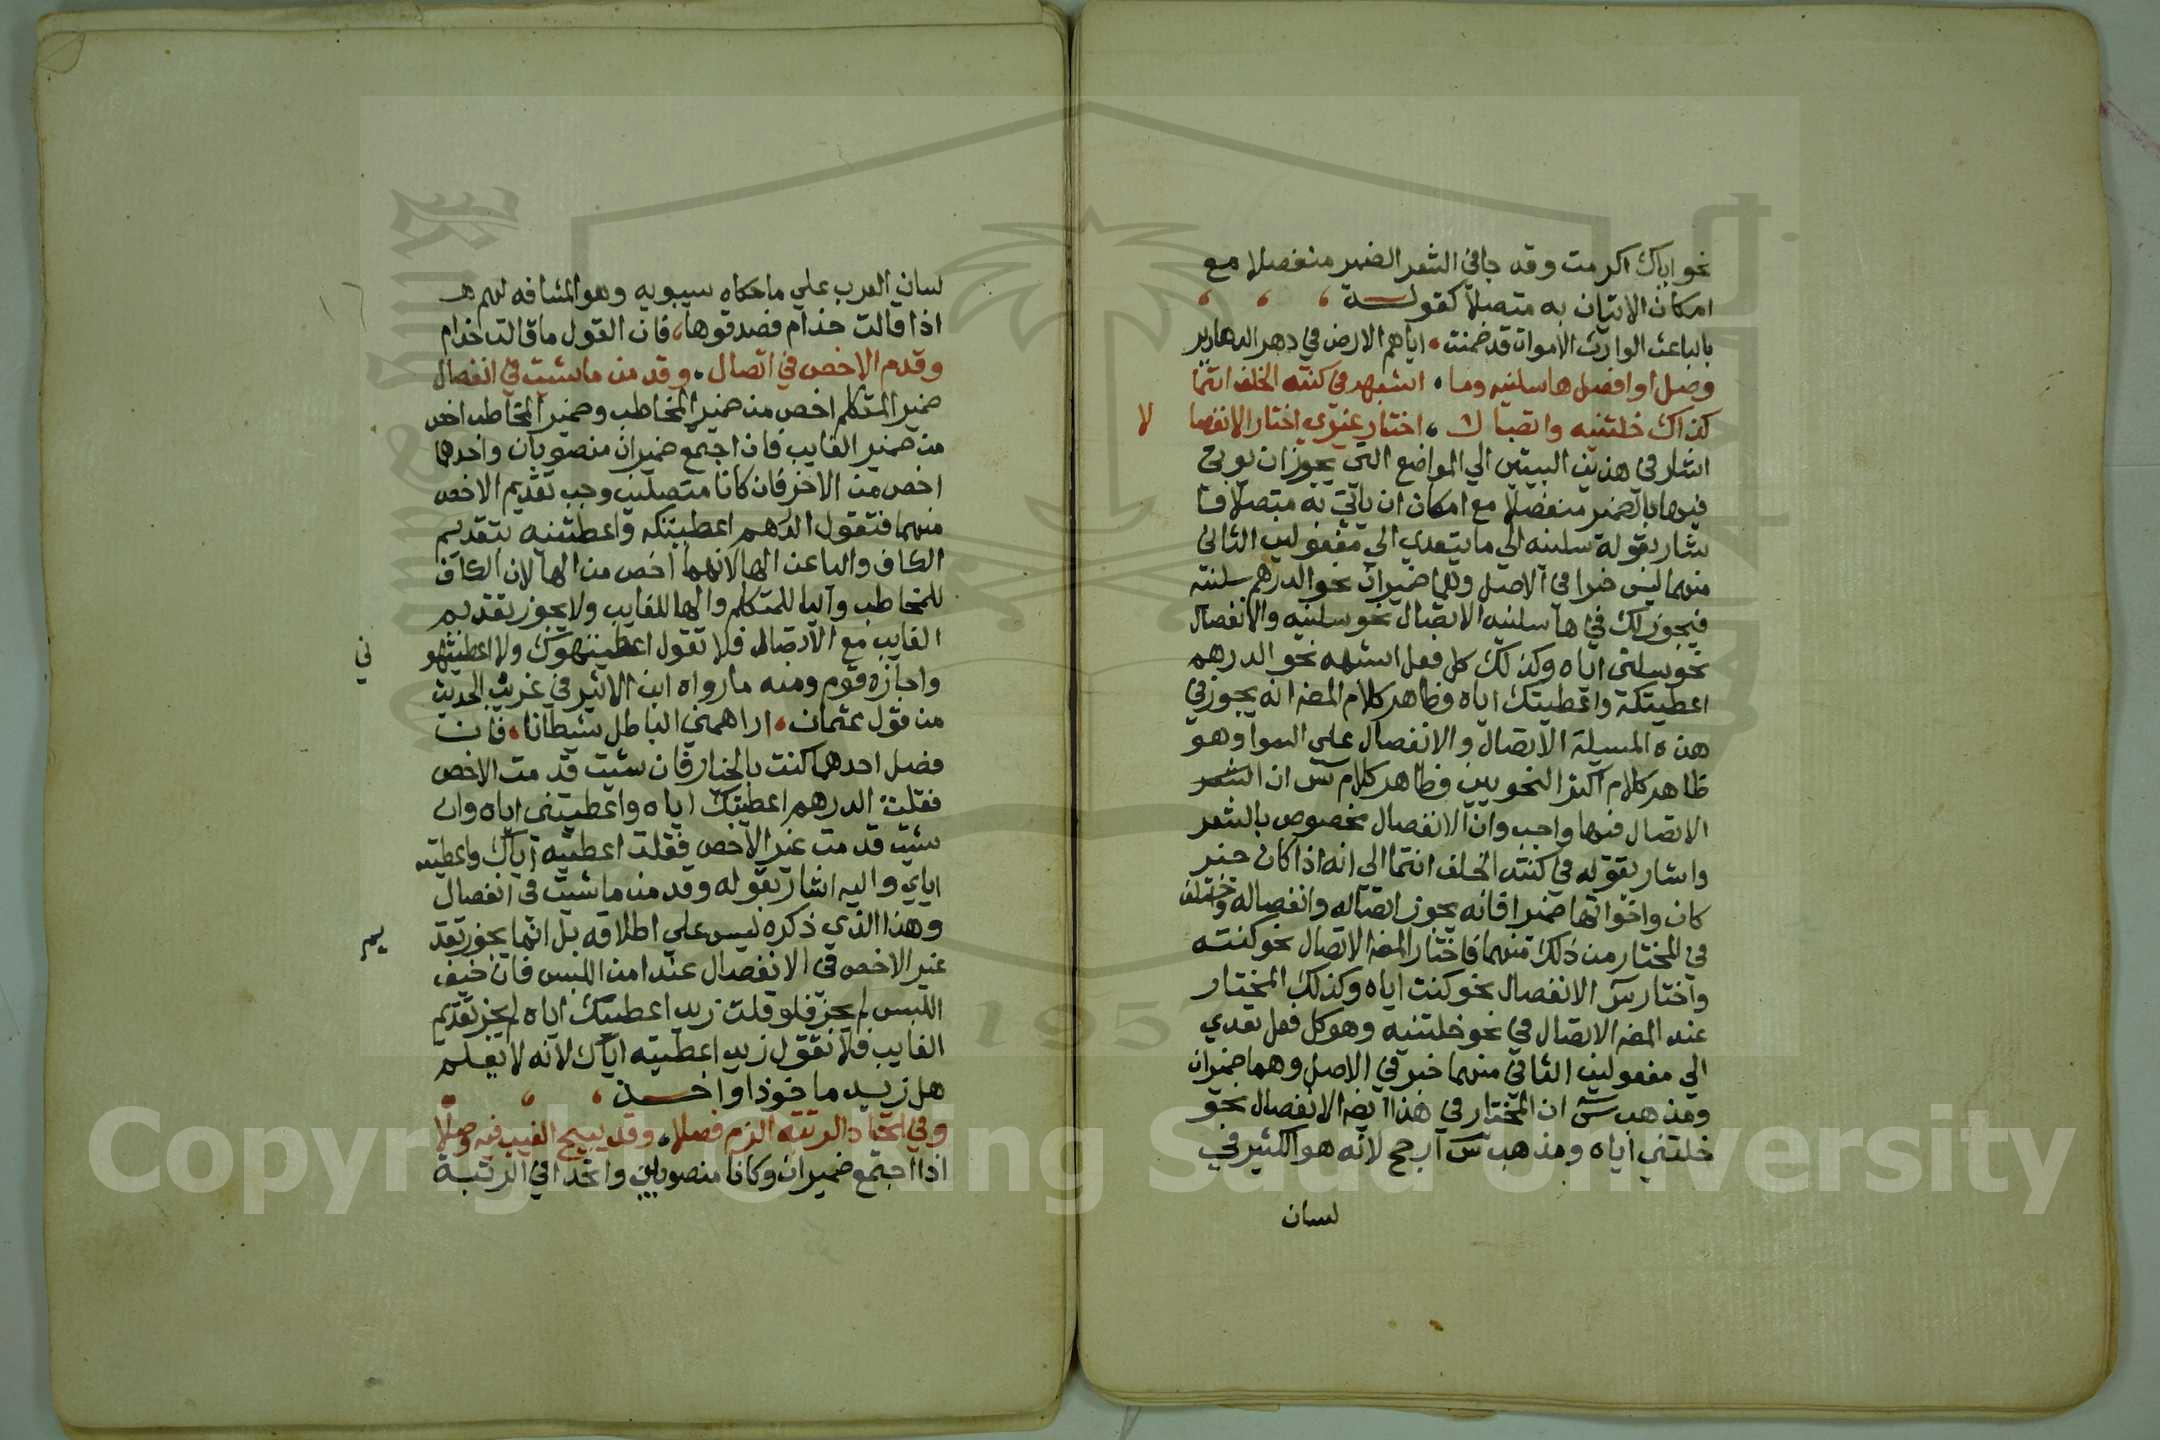 نحو اياك اكرمت وقد جا في الشعر الضمير منفصلا مع
امكان الاتيان به متصلا كقوله
بالباعث الوارث الاموات قد ضمنت اياهم الارض في دهر الدهارير
وصل او افصل ها سلنيه وما اشبهه في كنته الخلف انتما
كذاك خلتنيه واتصالا اختار غيري اختار الانفصا
لا
اشار في هذين البيتين الي المواضع التي يجوز ان يوتي
فيها بالضمير منفصلا مع امكان ان ياتي به متصلا فا
شار بقوله سلنيه الي ما يتعدي الي مفعولين الثاني
منهما ليس خبرا في الاصل وهما ضميران نحو الدرهم سلنيه
فيجوز لك في ها سلنيه الاتصال نحو سلنيه والانفصال
نحو سلني اياه وكذلك كل فعل اشبهه نحو الدرهم
اعطيتكه واعطيتك اياه وظاهر كلام المصـ انه يجوز في
هذه المسيلة الاتصال والانفصال علي السوا وهو
ظاهر كلام اكثر النحويين وظاهر كلام س ان الشعر
الاتصال فيها واجب وان الانفصال مخصوص بالشعر
واشار بقوله في كنته الخلف انتما الي انه اذا كان خبر
كان واخواتها ضميرا فانه يجوز اتصاله وانفصاله واختلف
في المختار من ذلك منهما فاختار المصـ الاتصال نحو كنته
واختار س الانفصال نحو كنت اياه وكذلك المختار
عند المصـ الاتصال في نحو خلتنيه وهو كل فعل تعدي
الي مفعولين الثاني منهما خبر في الاصل وهما ضميران
ومذهب س ان المختار في هذا ايضا الانفصال نحو
خلتني اياه ومذهب س ارجح لانه هو الكثير في
لسان
لسان العرب علي ما حكاه سيبويه وهو المشافه لهم
اذا قالت حذام فصدقوها فان القول ما قالت حذام
وقدم الاخص في اتصال وقد من ما شيت في انفصال
ضمير المتكلم اخص من ضمير المخاطب وضمير المخاطب اخص
من ضمير الغايب فان اجتمع ضميران منصوبان واحدهما
اخص من الاخر فان كانا متصلين وجب تقديم الاخص
منهما فتقول الدرهم اعطيتكه واعطيتنيه بتقديم
الكاف واليا عن الها لانهما اخص من الها لان الكاف
للمخاطب واليا للمتكلم والها للغايب ولا يجوز تقديم
الغايب مع الاتصال فلا تقول اعطيتهوك ولا اعطيتهو
ني
واجازه قوم ومنه ما رواه ابن الاثير في غريب الحديث
من قول عثمان اراهمني الباطل شيطانا فان
فصل احدهما كنت بالخيار فان شيت قدمت الاخص
فقلت الدرهم اعطيتك اياه واعطيتني اياه وان
شيت قدمت غير الاخص فقلت اعطيته اياك واعطيته
اياي واليه اشار بقوله وقد من ما شيت في انفصال
وهذا الذي ذكره ليس علي اطلاقه بل انما يجوز تقد
يم
غير الاخص في الانفصال عند امن اللبس فان خيف
اللبس لم يجز فلو قلت زيد اعطيتك اياه لم يجز تقديم
الغايب فلا تقول زيد اعطيته اياك لانه لا يعلم
هل زيد ماخوذ او اخذ
وفي اتحاد الرتبة الزم فصلا وقد يبيح الغيب فيه وصلا
اذا اجتمع ضميران وكانا منصوبين واتحدا في الرتبة
Copyright © King Saud University
1957